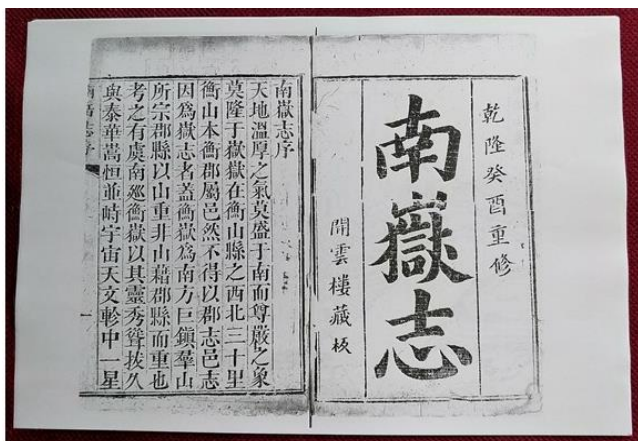 乾隆癸酉重修
南嶽志
開雲樓藏板
南嶽志序
天地溫厚之氣莫盛于南而尊嚴之象
莫隆于嶽嶽在衡山縣之西北三十里
衡山本衡郡屬邑然不得以郡志邑志
因爲嶽志者蓋衡嶽爲南方巨鎭羣山
所宗郡縣以山重非山藉郡縣而重也
考之有虞南廵衡嶽以其靈秀聳拔久
與泰華嵩恒並峙宇宙天文軫中一星